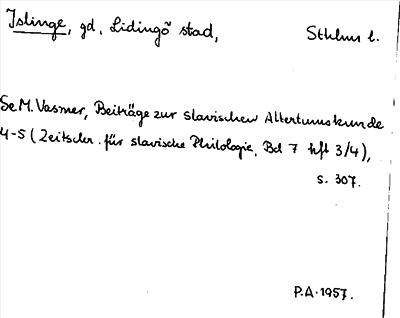 Islinge, gd, Lidingö stad, Sthlms l.
Se M. Vasmer, Beiträge zur slavischen Altertumskunde
4-5 (Zeitschr. für slavische Philologie, Bd 7 hft 3/4),
s. 307.
P.A. 1957.